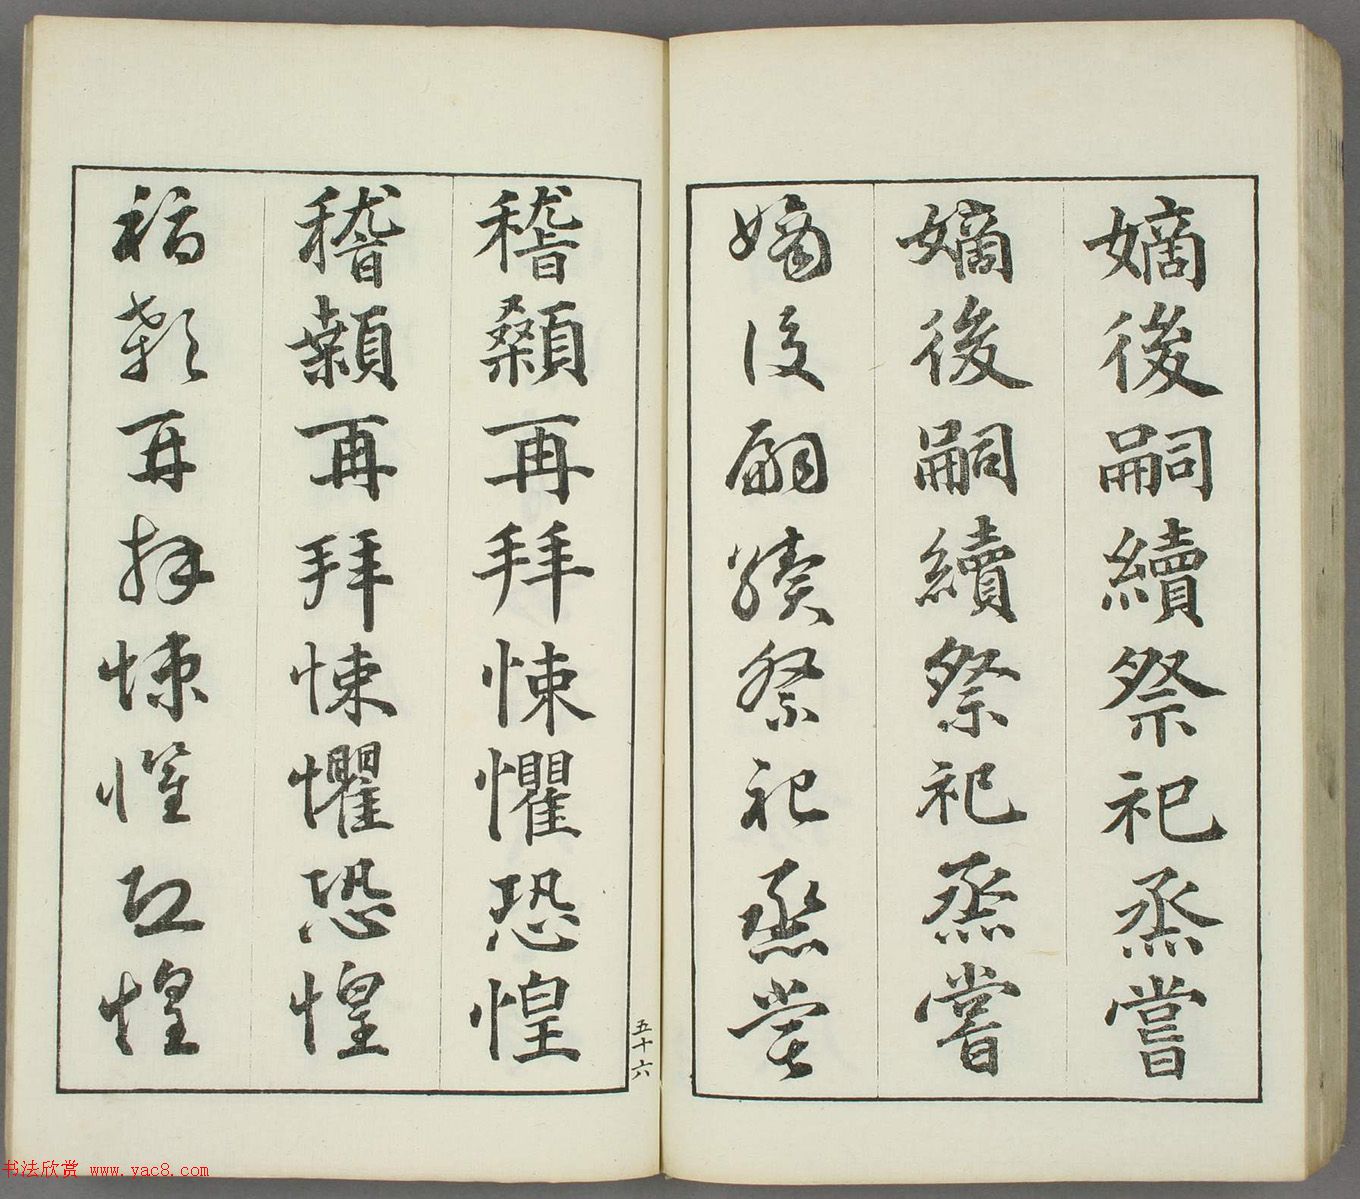 嫡後嗣續祭祀烝嘗
嫡後嗣續祭祀烝嘗
嫡後嗣續祭祀烝嘗
稽顙再拜悚懼恐惶
稽顙再拜悚懼恐惶
稽顙再拜悚懼恐惶
五十六
书法欣赏 www.yac8.com